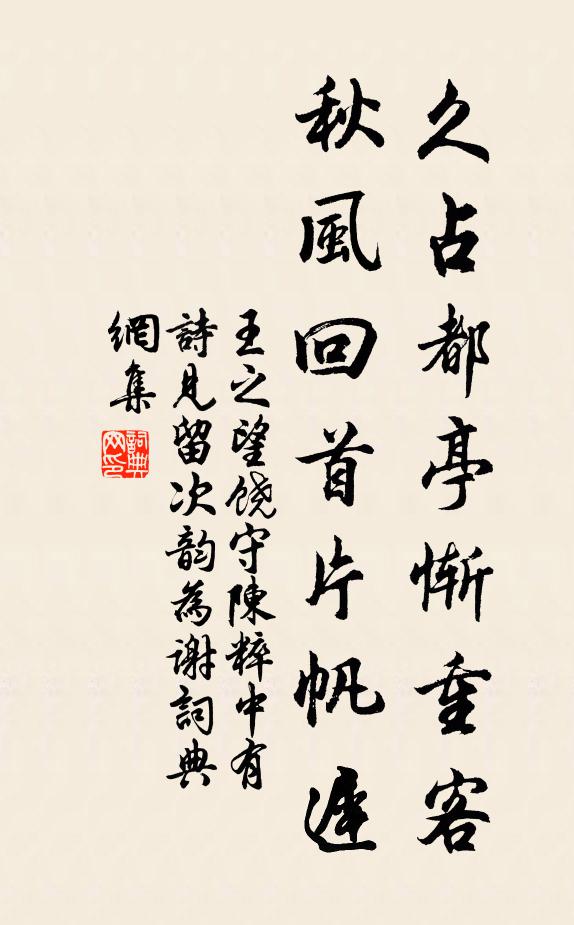 久占都亭惭重客
秋風回首片帆遲
王之望饶守陳粹中有
詩見留次韵為谢詞典
網集
詞典網印